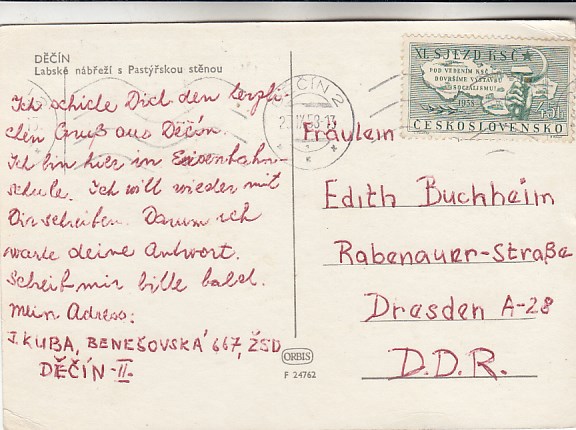 DĚČÍN
Labské nábřeží s Pastýřskou stěnou
Ich schicke Dich den herzli-
chen Gruß aus Děčín.
Ich bin hier in Eisenbahn-
schule. Ich will wieder mit
Dir schreiben. Darum ich
warte deine Antwort.
Schreib mir bitte bald.
Mein Adress:
J. KUBA, BENEŠOVSKÁ 667, ŽSD
DĚČÍN-II.
ORBIS
F 24762
DĚČÍN 2
XI. SJEZD KSČ
POD VEDENÍM KSČ
DOVRŠÍME VÝSTAVBU
SOCIALISMU!
1958
ČESKOSLOVENSKO
Fräulein
Edith Buchheim
Rabenauer-Straße
Dresden A-28
D.D.R.